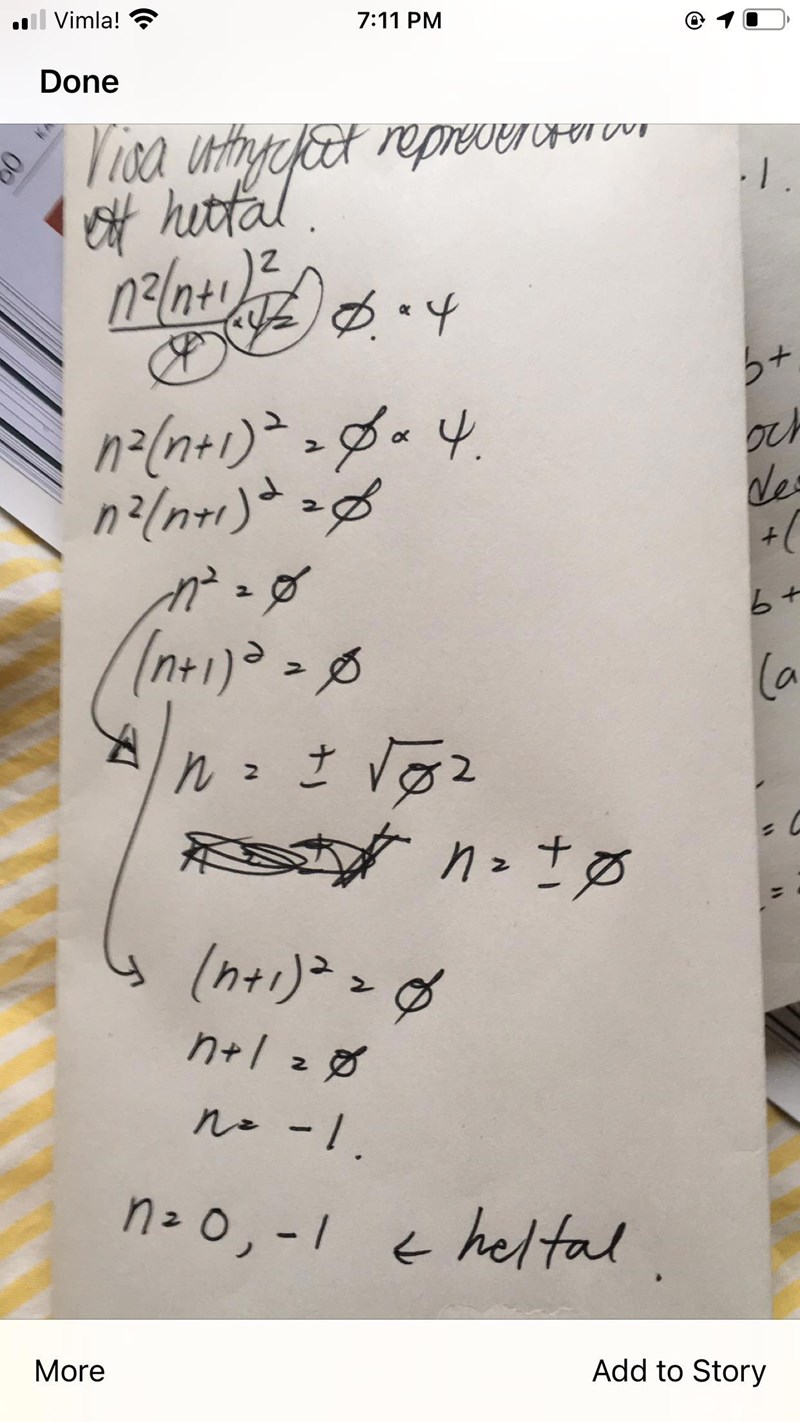 Vimla! 7:11 PM
Done
60
Visa uttrycket representerar
ett heltal.
n²(n+1)²/4 · 4 = Ø · 4
n²(n+1)² = Ø · 4.
n²(n+1)² = Ø
n² = Ø
(n+1)² = Ø
n = ± √Ø2
n = ± Ø
(n+1)² = Ø
n+1 = Ø
n = -1.
n = 0, -1 ← heltal.
·1.
b+
och
+(
b+
(a
More Add to Story